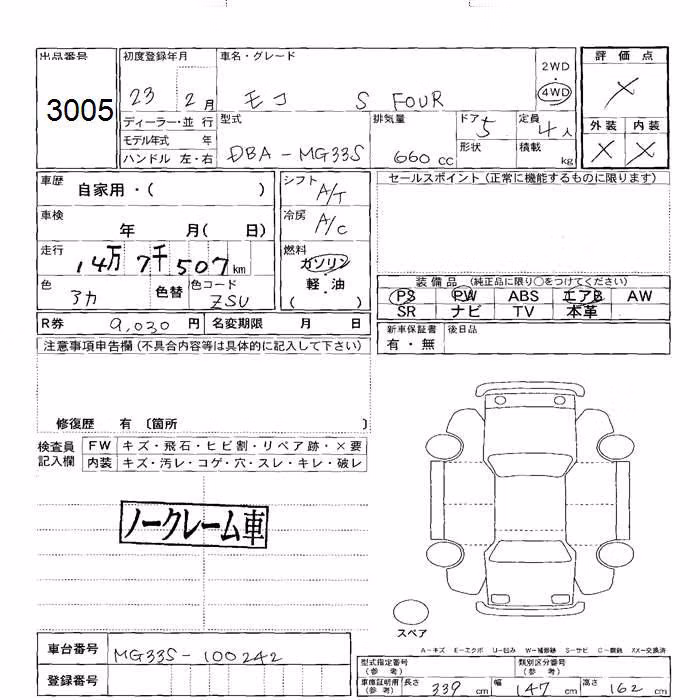 出品番号 初度登録年月 車名・グレード 評価点
3005 23 2月 モコ S FOUR 2WD・4WD ×
ディーラー・並行 型式 排気量 ドア 5 定員 4人 外装 内装
モデル年式 年 DBA-MG33S 660cc 形状 積載 kg × ×
ハンドル 左・右
車歴 自家用・( ) シフト A/T セールスポイント(正常に機能するものに限ります)
車検 年 月( 日) 冷房 A/C
走行 14万7千507km 燃料 ガソリン
色 アカ 色替 色コード ZSU 軽・油 ( )
装備品 (純正品に限り○をつけてください)
PS PW ABS エアB AW
R券 9,030円 名変期限 月 日 SR ナビ TV 本革
注意事項申告欄(不具合内容等は具体的に記入して下さい) 新車保証書 有・無 後日品
修復歴 有 〔箇所 〕
検査員 FW キズ・飛石・ヒビ割・リペア跡・×要
記入欄 内装 キズ・汚レ・コゲ・穴・スレ・キレ・破レ
ノークレーム車
スペア
車台番号 MG33S-100242
A-キズ E-エクボ U-凹み W-補修跡 S-サビ C-腐蝕 XX-交換済
登録番号 型式指定番号(参考) 類別区分番号(参考)
車庫証明用(参考) 長さ 339cm 幅 147cm 高さ 162cm